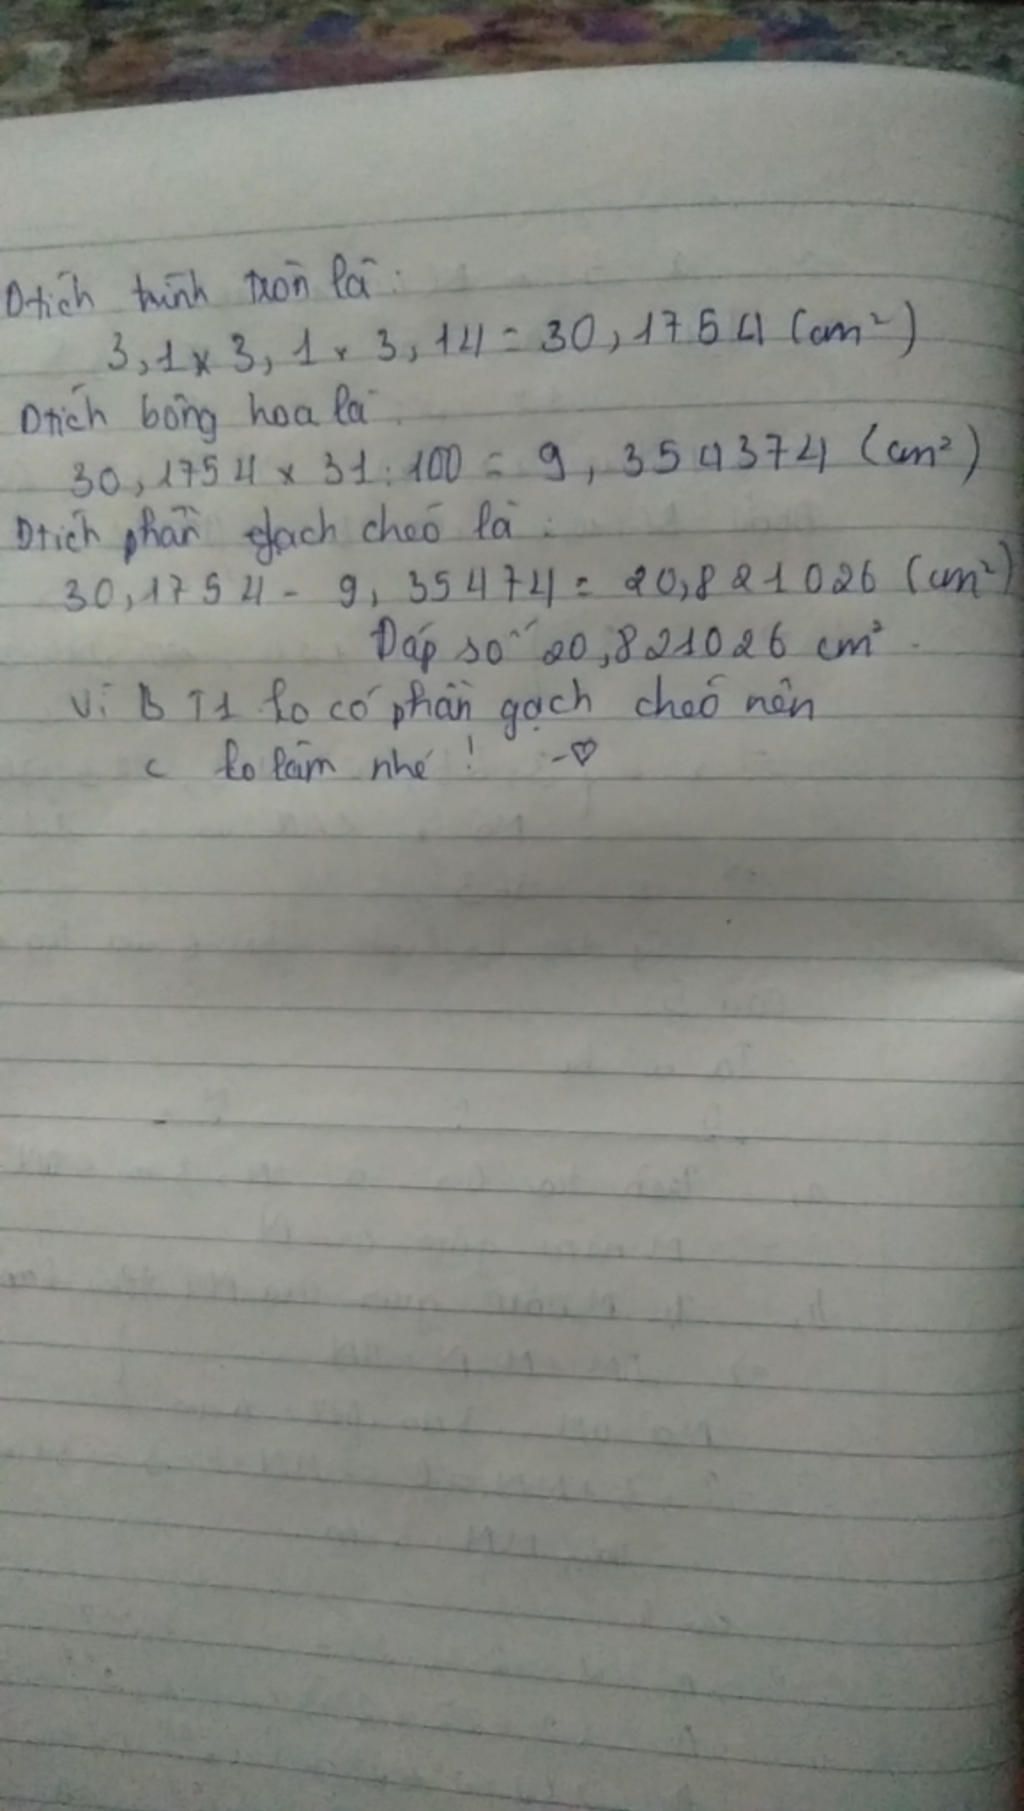 Dtích hình tròn là:
3,1 x 3,1 x 3,14 = 30,1754 (cm²)
Dtích bông hoa là
30,1754 x 31 : 100 = 9,354374 (cm²)
Dtích phần gạch chéo là:
30,1754 - 9,35474 = 20,821026 (cm²)
Đáp số 20,821026 cm².
Vì BT1 ko có phần gạch chéo nên
c ko làm nhé! -♡